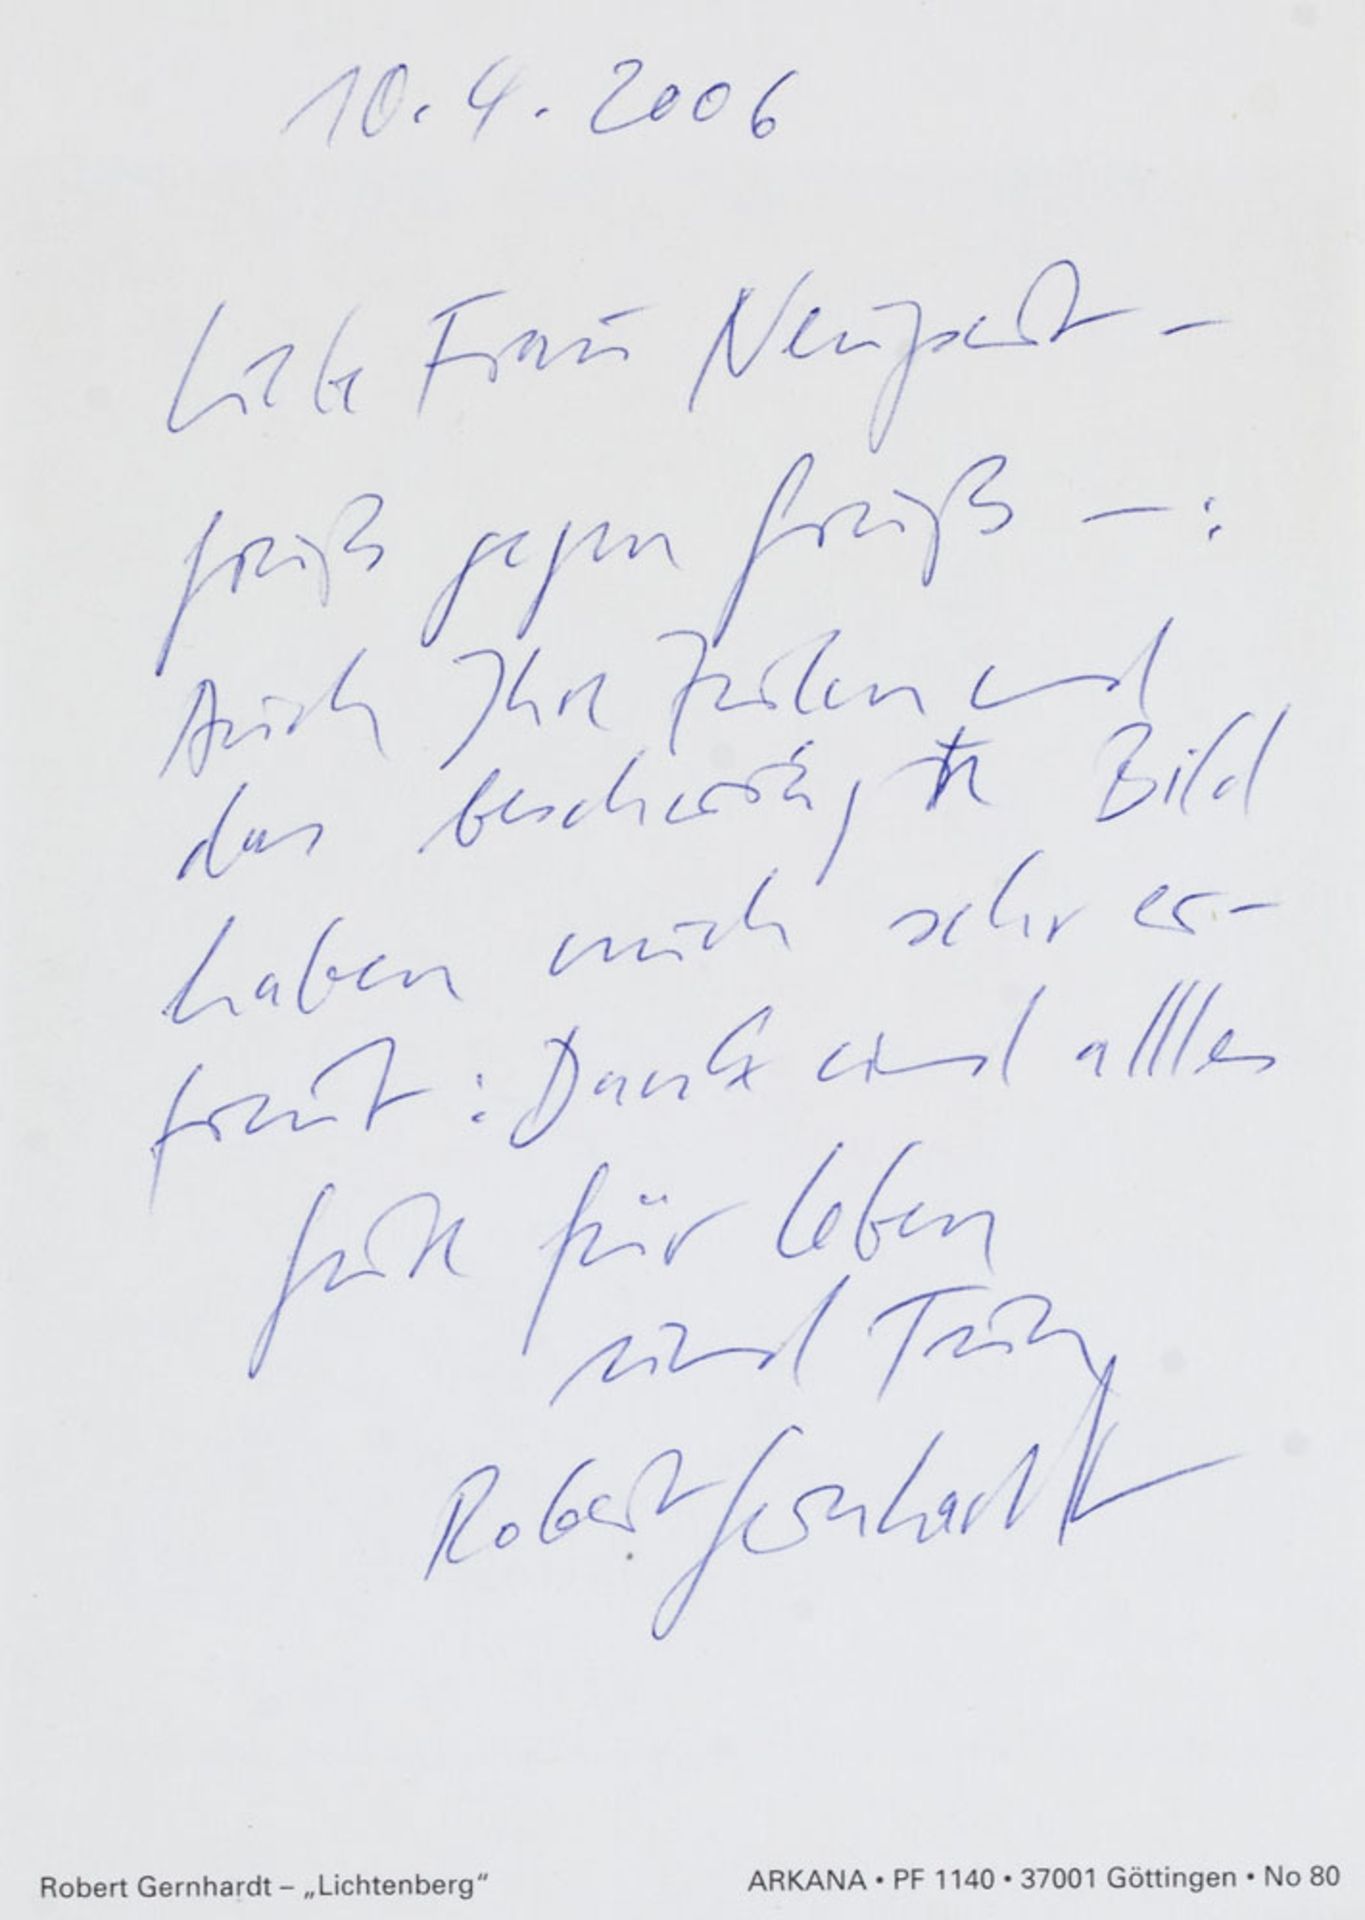 10.4.2006
Liebe Frau Neupert –
Gruß gegen Gruß – :
Auch Ihre Zeilen und
das beschwingte Bild
haben mich sehr er-
freut : Dank und allles
Gute für Leben
und Tun
Robert Gernhardt
Robert Gernhardt – „Lichtenberg“
ARKANA • PF 1140 • 37001 Göttingen • No 80